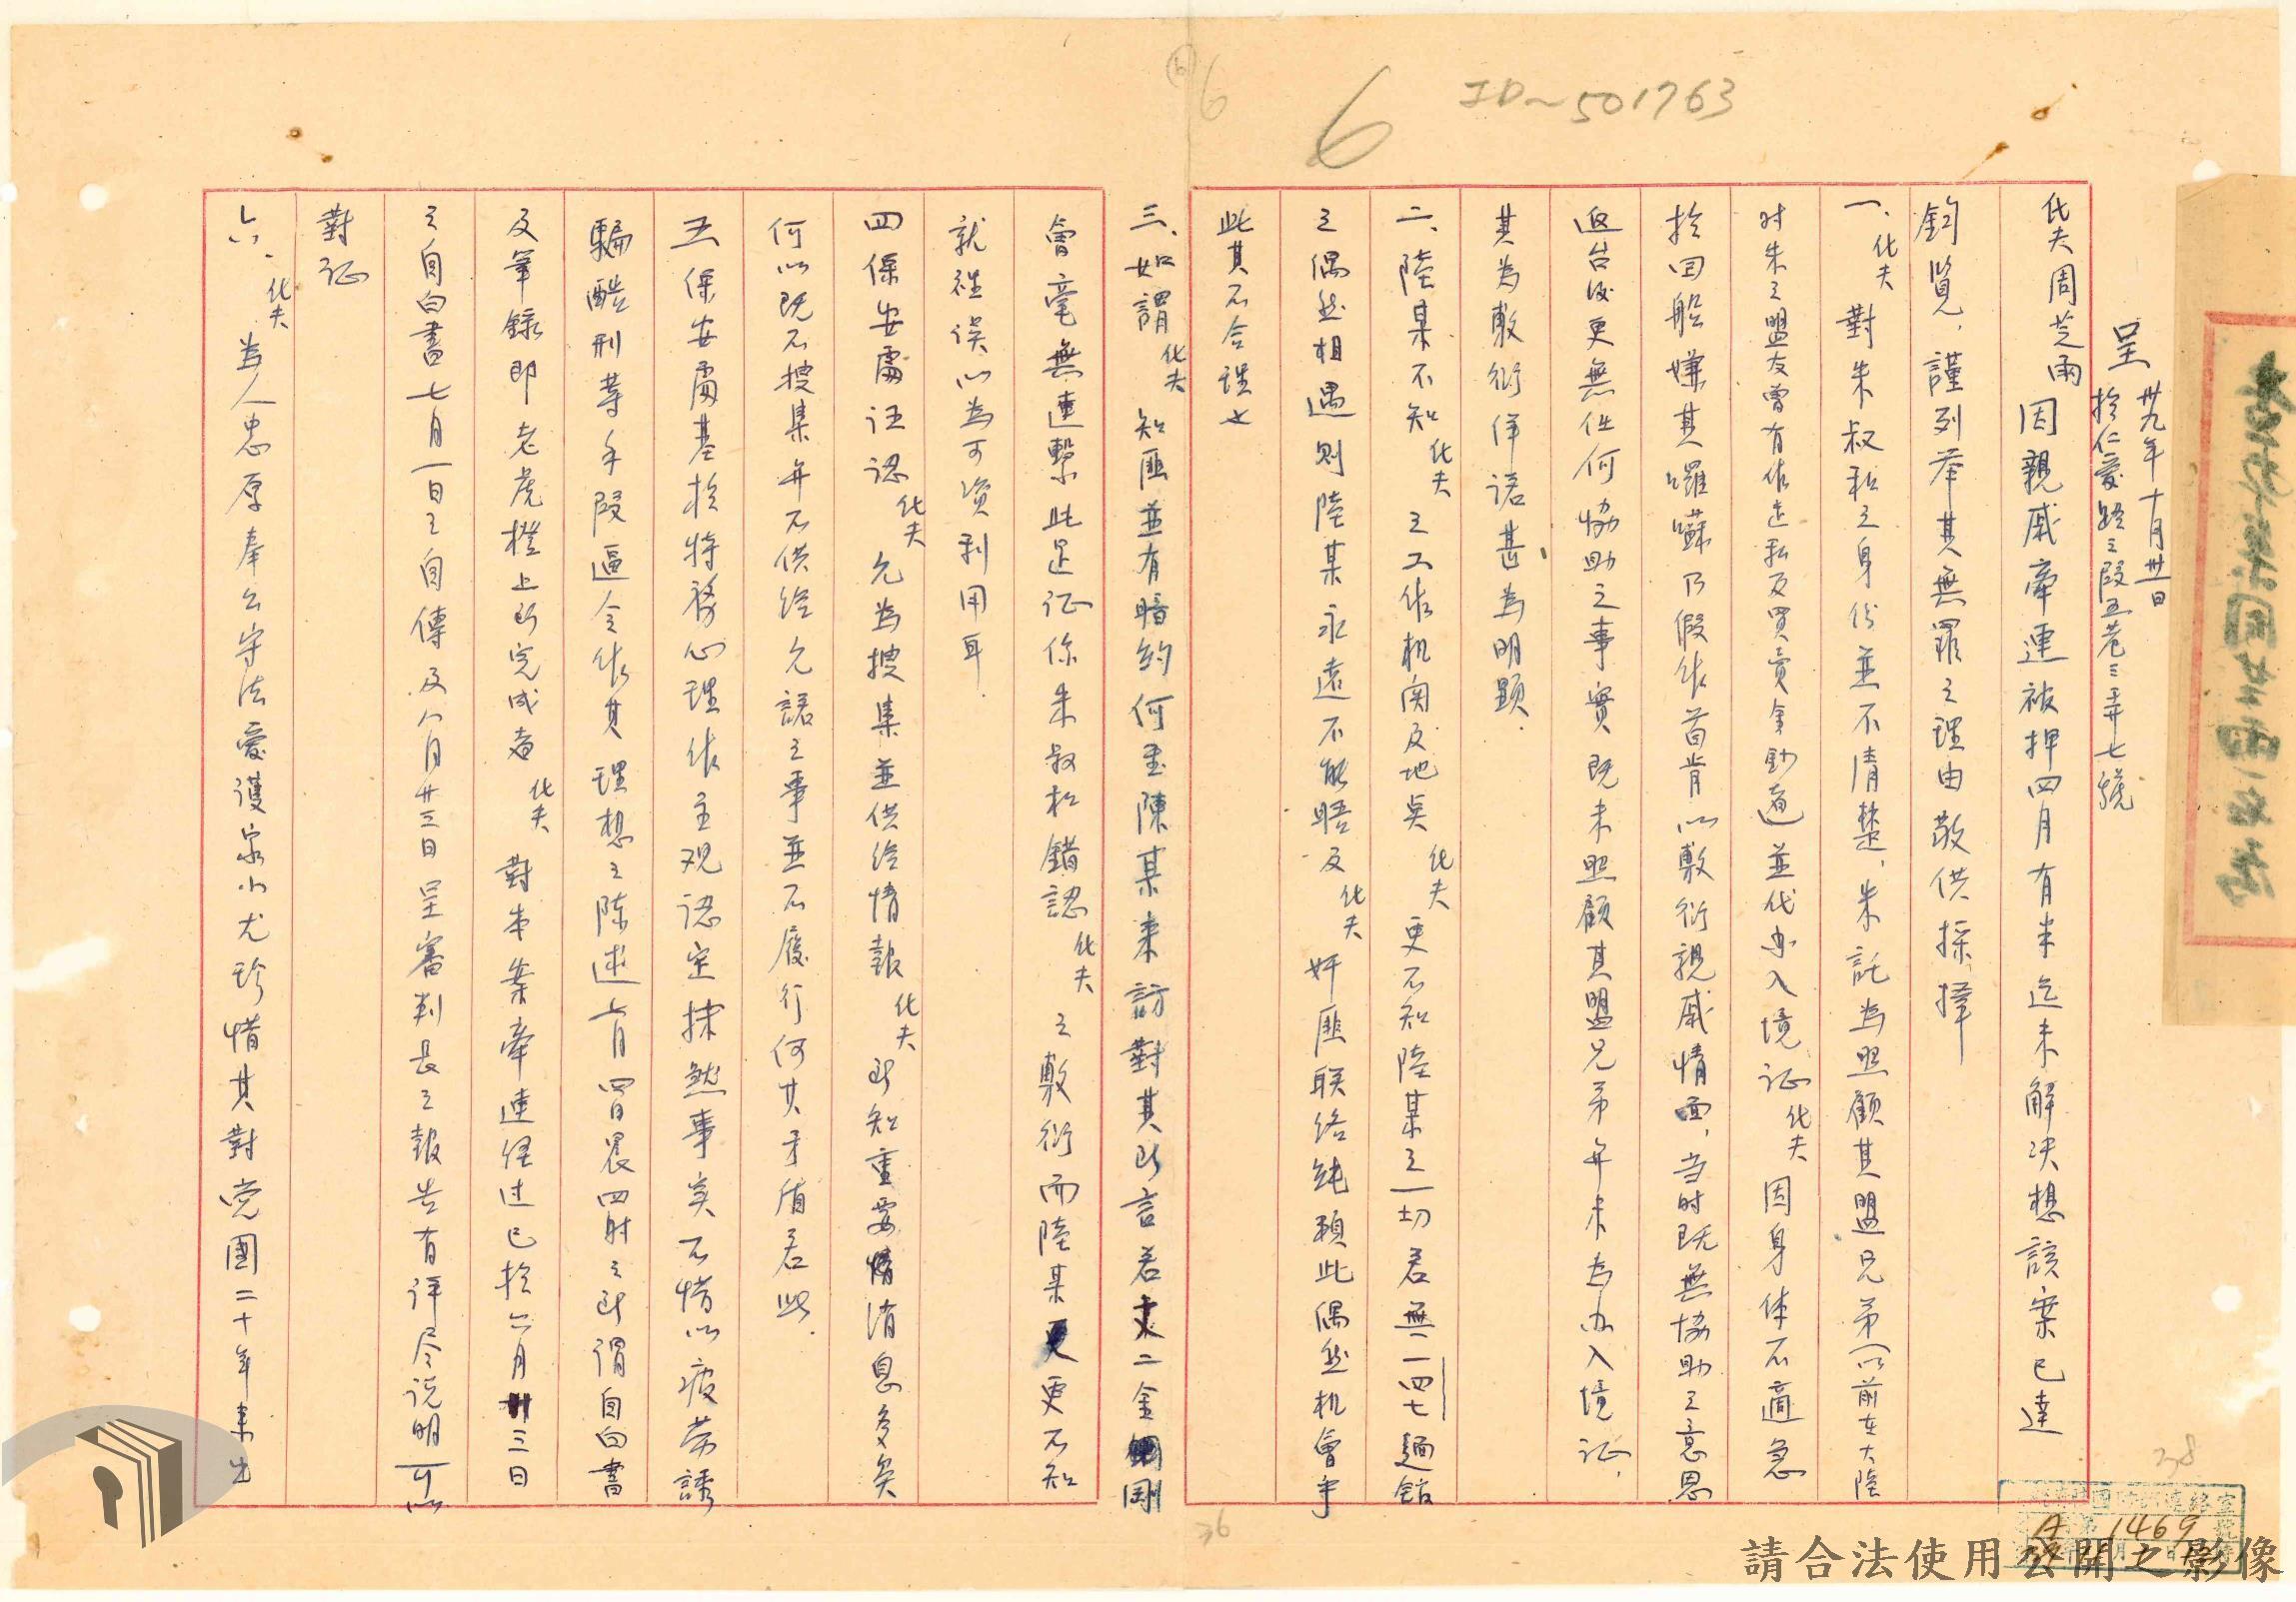 6
6
ID~501763
呈 卅九年十月卅一日
於仁愛路三段五巷三弄七號
化夫周芝雨因親戚牽連被押四月有半迄未解决想該案已達
鈞覽，謹列举其無罪之理由敬供採擇
一、化夫對朱叔私之身份並不清楚，朱託為照顧其盟兄弟（以前在大陸
时朱之盟友曾有作走私及買賣金鈔者）並代办入境证化夫因身体不適急
於回船嫌其囉囌乃假作首肯以敷衍親戚情面，当时既無協助之意思
返台後更無任何協助之事實既未照顧其盟兄弟并未為办入境证，
其為敷衍佯諾甚為明顯．
二、陸某不知化夫之工作机関及地点化夫更不知陸某之一切若無一四七麺館
之偶然相遇則陸某永遠不能晤及化夫奸匪联络純賴此偶然机會乎
此其不合理也
三、如謂化夫知匪並有暗約何至陳某来訪對其所言若丈二金剛
會毫無連繫此足证係朱叔私錯認化夫之敷衍而陸某更不知
就裡误以為可資利用耳．
四保安處诬認化夫允為搜集並供给情報化夫所知重要情消息多矣
何以既不搜集并不供给允諾之事並不履行何其矛盾若此．
五保安處基於特務心理作主观認定抹煞事实不惜以疲劳誘
騙酷刑等手段逼令作其理想之陈述七月四日晨四时之所谓自白書
及筆錄即老虎櫈上所完成者化夫對本案牽連经过已於六月三日
之自白書七月一日之自傳及八月廿三日呈審判長之報告有详尽说明可以
對证
六．化夫為人忠厚奉公守法愛護家小尤珍惜其對党國二十年来出
36
238
A 1469
請合法使用公開之影像